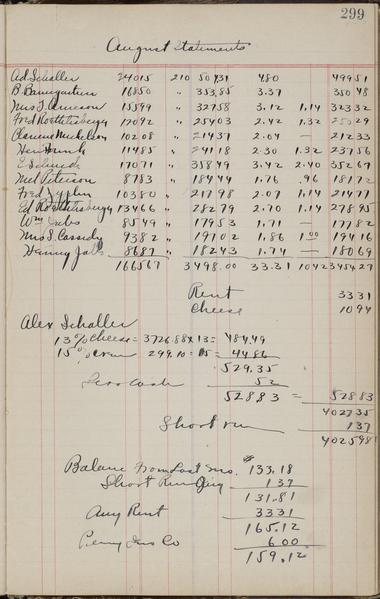 299
August Statements
Ad Schaller 24015 210 504.31 4.80 499.51
B. Baumgartner 16850 " 353.85 3.37 350.48
Mrs J. Ameson 15599 " 327.58 3.12 1.14 323.32
Fred Rothlisberger 12092 " 254.03 2.42 1.32
Clarence Mickelson 10208 " 214.37 2.04 — 212.33
Hein 11485 " 241.18 2.30 1.32 237.56
E. Schmid 17071 " 358.49 3.42 2.40 352.67
Mel Peterson 8783 " 184.44 1.76 .96 181.72
Fred 10380 " 217.98 2.07 1.14 214.77
Ed Rothlisberger 13466 " 282.79 2.70 1.14 278.95
Wm 8549 " 179.53 1.71 — 177.82
Mrs S. Cassidy 9382 " 197.02 1.86 1.00 194.16
Henry 8687 " 182.43 1.74 — 180.69
166567 3498.00 33.31 10.42 3454.27
Rent 33.31
Cheese 10.94
Alex Schaller
13% cheese = 3726.88 x 13 = 484.49
15% cream 299.10 = 15 = 44.86
529.35
Less cash .52
528.83 = 528.83
4027.35
Short run 1.37
4025.98
Balance From Last Mo. $ 133.18
Short Run Aug 1.37
131.81
Aug Rent 33.31
165.12
Penny Ins Co 6.00
159.12